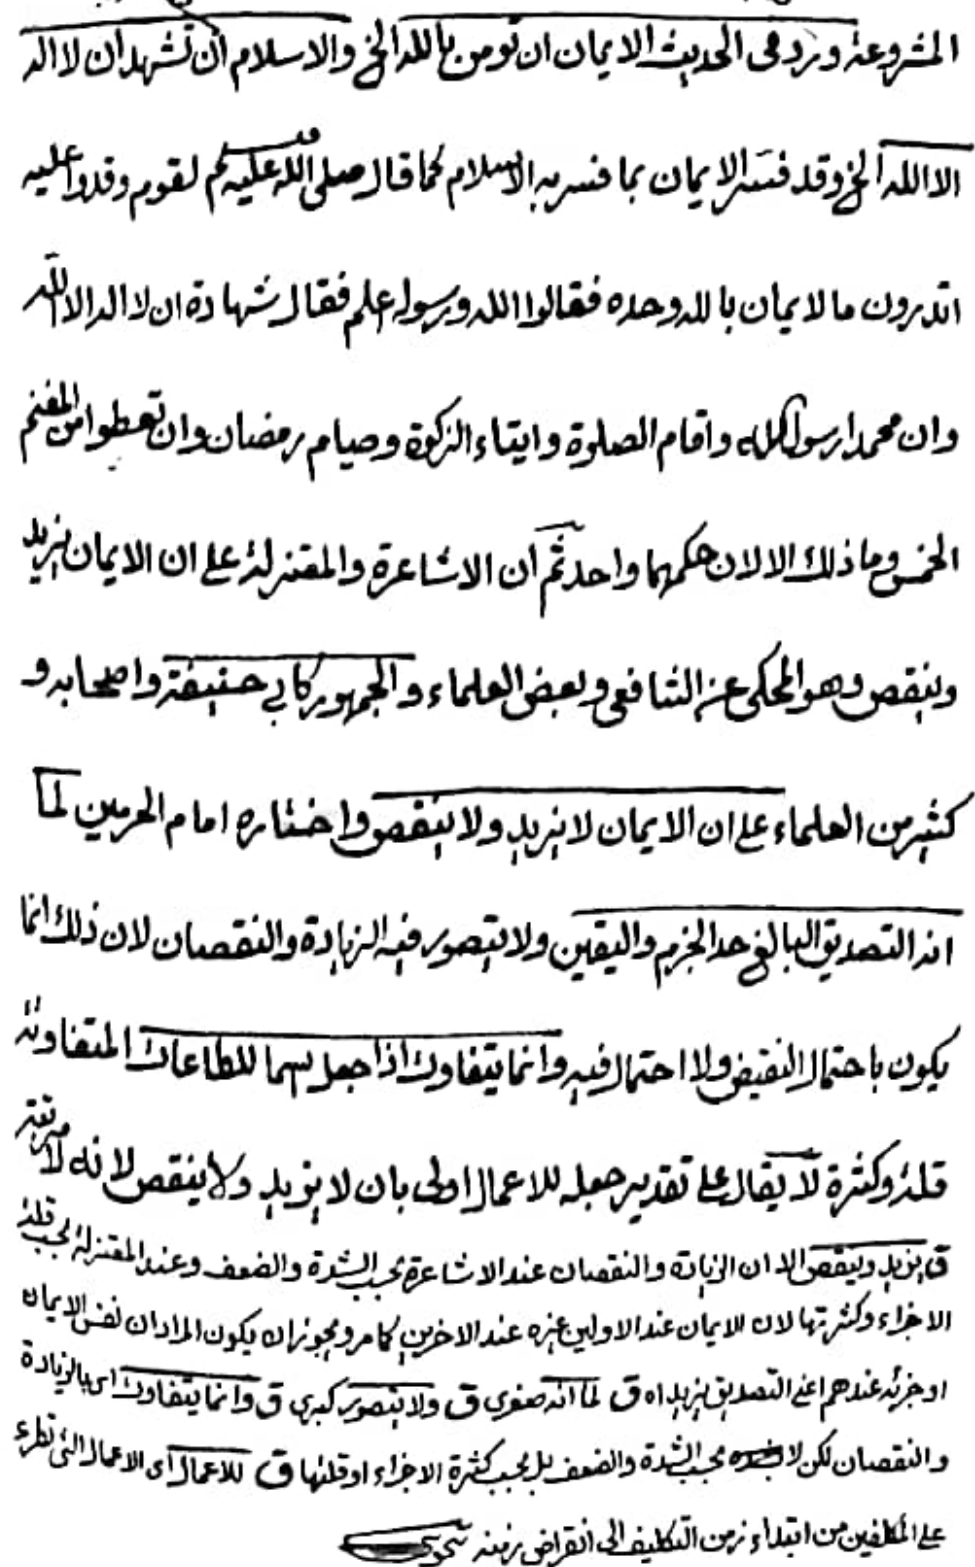 المشروعة ورد فى الحديث الايمان ان تومن بالله الخ والاسلام ان تشهد ان لا اله
الا الله الخ وقد فسر الايمان بما فسر به الاسلام كما قال صلى الله عليه لقوم وفدوا عليه
اتدرون ما لايمان بالله وحده فقالوا الله ورسوله اعلم فقال شهادة ان لا اله الا الله
وان محمدا رسول الله واقام الصلوة وايتاء الزكوة وصيام رمضان وان تعطوا من المغنم
الخمس وما ذلك الا لان حكمهما واحد ثم ان الاشاعرة والمعتزلة على ان الايمان يزيد
وينقص وهو المحكى عن الشافعى وبعض العلماء والجمهور كابي حنيفة واصحابه و
كثير من العلماء على ان الايمان لا يزيد ولا ينقص واختاره امام الحرمين لما
انه التصديق البالغ حد الجزم واليقين ولا يتصور فيه الزيادة والنقصان لان ذلك انما
يكون باحتمال النقيض ولا احتمال فيه وانما يتفاوت اذا جعل اسما للطاعات المتفاوتة
قلة وكثرة لا يقال على تقدير جعله للاعمال اولى بان لا يزيد ولا ينقص لانه لا مرتبة
ق يزيد وينقص الا ان الزيادة والنقصان عند الاشاعرة بحسب الشدة والضعف وعند المعتزلة بحسب قلة
الاجزاء وكثرتها لان الايمان عند الاولين غيره عند الاخرين كما مر ويجوز ان يكون المراد ان نفس الايمان
او جزئه عندهم اعنى التصديق يزيد اه ق لما انه صغرى ق ولا يتصور كبرى ق وانما يتفاوت اى بالزيادة
والنقصان لكن لا بحسب الشدة والضعف بل بحسب كثرة الاجزاء او قلتها ق للاعمال اى الاعمال التى تطرء
على المكلفين من ابتداء زمن التكليف الى انقراض زمنه